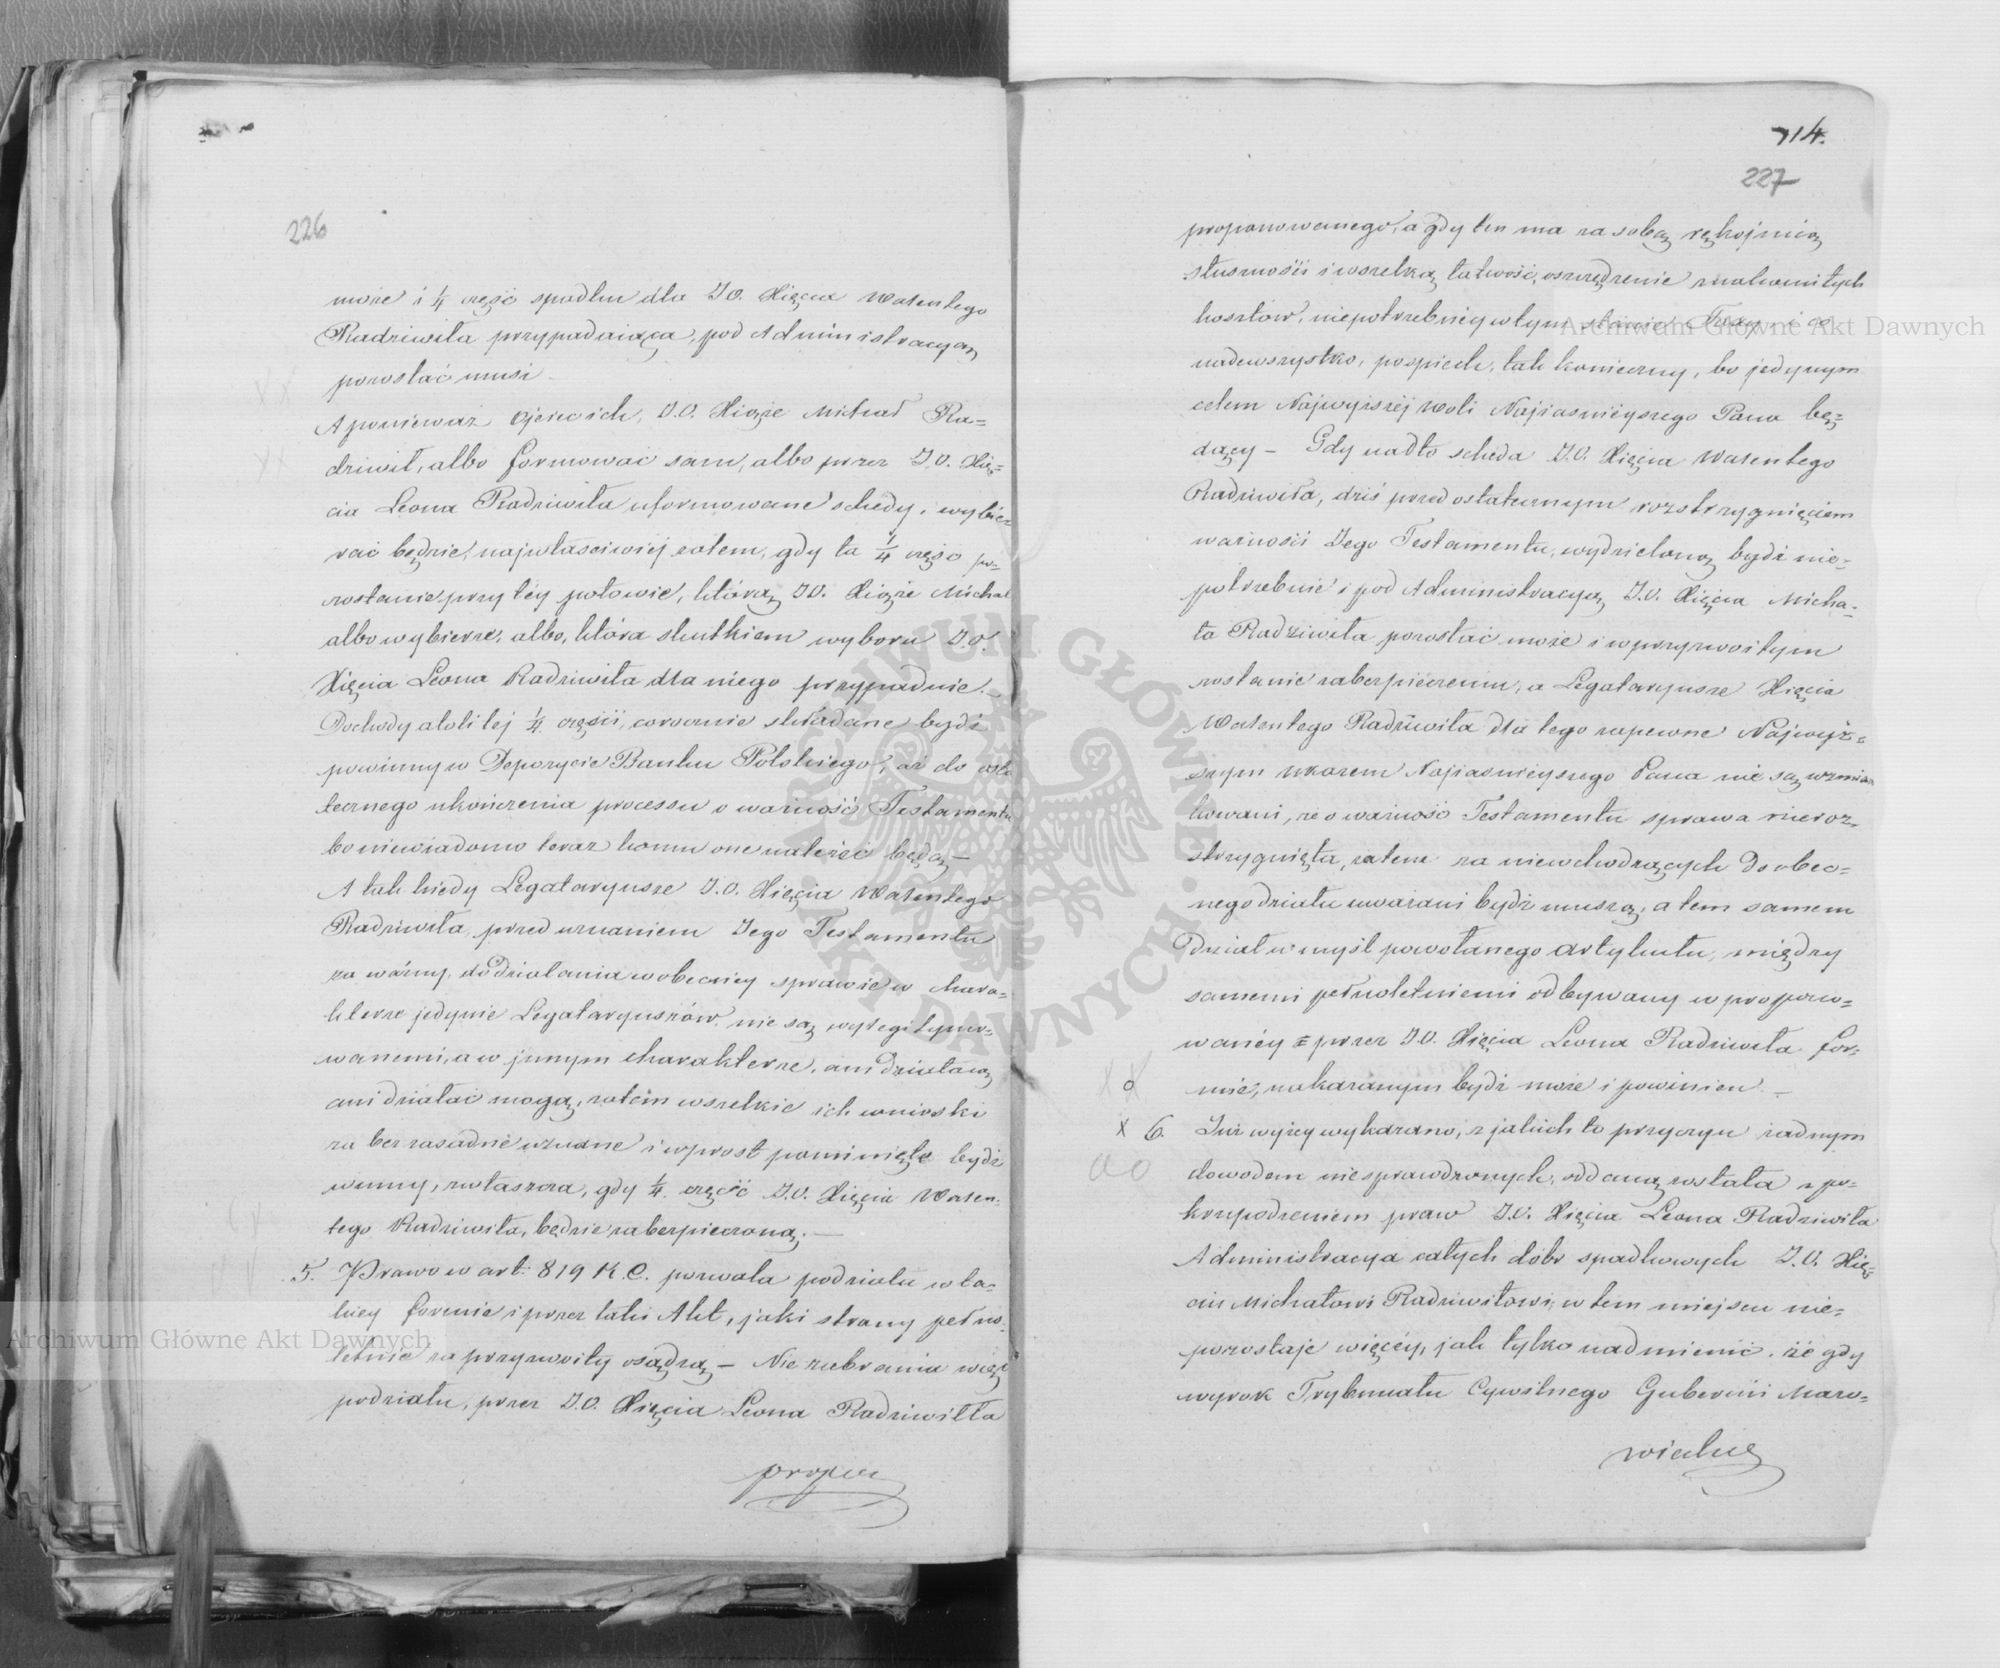 226
może i 1/4 część spadku dla J.O. Xięcia Walentego
Radziwiła przypadaiąca, pod Administracyą
pozostać musi
A ponieważ Ojciec ich, J.O. Xiąże Michał Ra=
dziwił, albo formować sam, albo przez J.O. Xię=
cia Leona Radziwiła uformowane schedy, wybie=
rać będzie, najwłaściwiéj zatem, gdy ta 1/4 część po=
zostanie przy téy połowie, którą J.O. Xiąże Michał
albo wybierze, albo, która skutkiem wyboru J.O.
Xięcia Leona Radziwiła dla niego przypadnie. —
Dochody atoli tej 1/4 części, corocznie składane bydź
powinny w Depozycie Banku Polskiego, aż do osta
tecznego ukończenia processu o ważność Testamentu
bo niewiadomo teraz komu one należeć będą —
A tak kiedy Legataryusze J.O. Xięcia Walentego
Radziwiła, przed uznaniem Jego Testamentu
za ważny, do działania w obecney sprawie w chara=
kterze jedynie Legataryuszów, nie są wylegitymo=
wanemi, a w jnnym charakterze, ani działaią
ani działać mogą, zatém wszelkie ich wnioski
za bezzasadne uznane i wprost pominięte bydź
winny, zwłaszcza, gdy 1/4 część J.O. Xięcia Walen=
tego Radziwiła, będzie zabezpieczoną. —
5. Prawo w art: 819 K.C. pozwala podziału w ta=
kiey formie i przez taki Akt, jaki strony pełno=
letnie za przyzwoity osądzą — Nie zabrania więc
podziału, przez J.O. Xięcia Leona Radziwiłła
propo
714.
227
proponowanego, a gdy ten ma za sobą rękojmią
słuszności i wszelką łatwość, oszczędzenie znakomitych
kosztów, niepotrzebnéy w tym stanie Taxy, i co
nadewszystko, pospiech, tak konieczny, bo jedynym
celem Najwyższéj woli Najiaśnieyszego Pana bę=
dący — Gdy nadto scheda J.O. Xięcia Walentego
Radziwiła, dziś przed ostatecznym rozstrzygnięciem
ważności Jego Testamentu, wydzieloną bydź nie=
potrzebuie i pod Administracyą J.O. Xięcia Micha=
ła Radziwiła pozostać może i w przyzwoitym
zostanie zabezpieczeniu, a Legataryusze Xięcia
Walentego Radziwiła dla tego zapewne Najwyż=
szym Ukazem Najiaśnieyszego Pana nie są wzmian
kowani, że o ważność Testamentu sprawa nieroz=
strzygnięta, zatem za niewchodzących do obec=
nego działu uważani bydź muszą, a tem samem
Dział w myśl powołanego artykułu, między
samemi pełnoletniemi odbywany w propono=
wanéy przez J.O. Xięcia Leona Radziwiła for=
mie, nakazanym bydź może i powinien. —
x 6. Już wyżey wykazano, z jakich to przyczyn żadnym
dowodem niesprawdzonych, oddaną została z po=
krzywdzeniem praw J.O. Xięcia Leona Radziwiła
Administracya całych dóbr spadkowych J.O. Xię=
ciu Michałowi Radziwiłowi; w tem miejscu nie=
pozostaje więcéy, jak tylko nadmienić, że gdy
wyrok Trybunału Cywilnego Gubernii Mazo=
wieckiej
Archiwum Główne Akt Dawnych
Archiwum Główne Akt Dawnych
ARCHIWUM GŁÓWNE AKT DAWNYCH